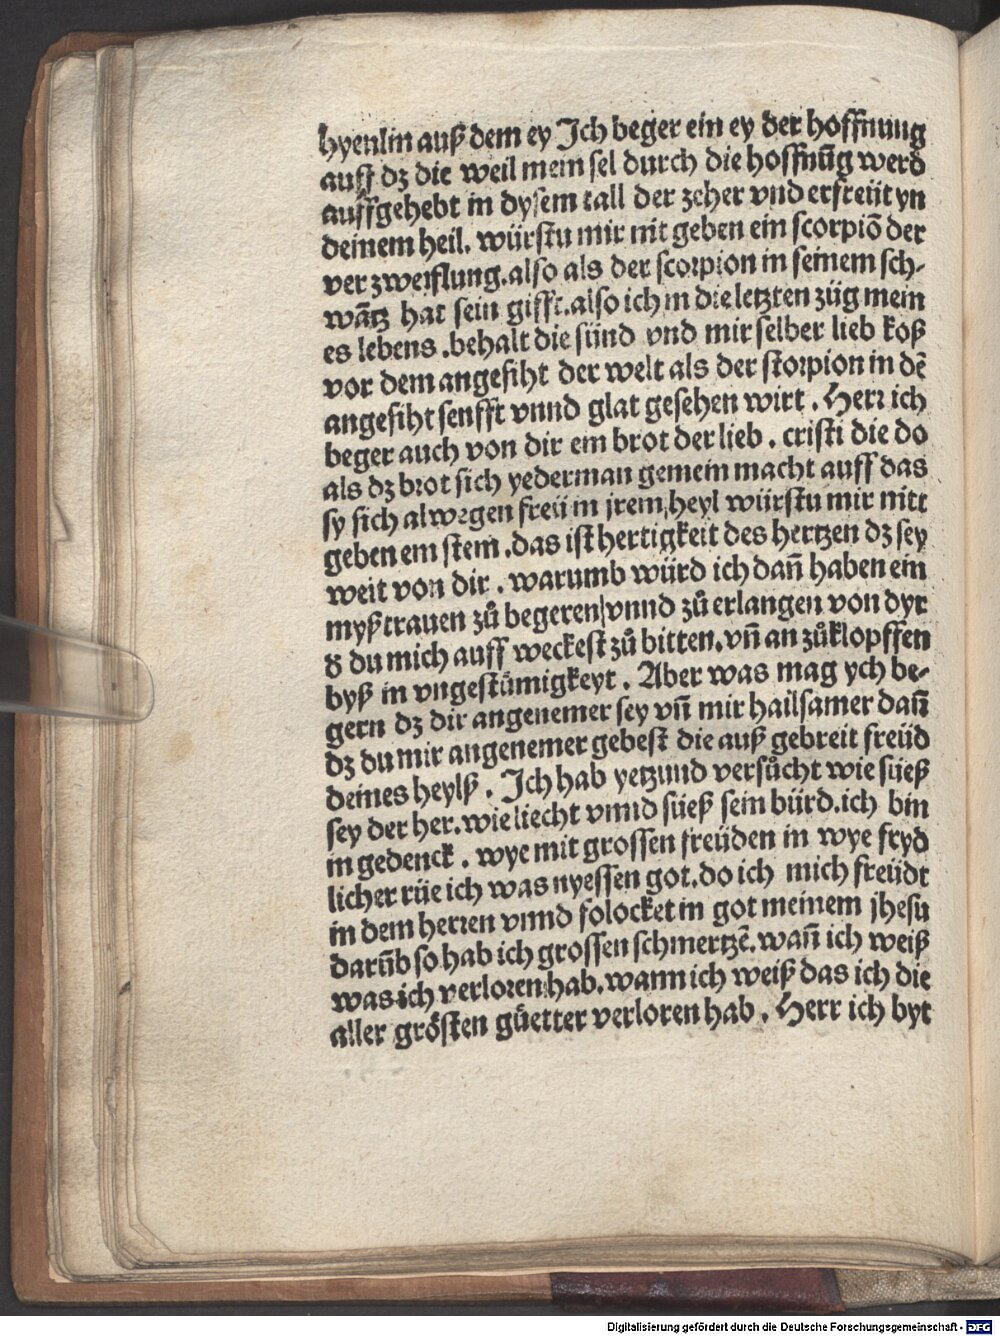 hyenlin auß dem ey Ich beger ein ey der hoffnung
auff dz die weil mein sel durch die hoffnūg werd
auffgehebt in dysem tall der zeher vnd erfreüt yn
deinem heil. würstu mir nit geben ein scorpiō der
ver zweiflung.also als der scorpion in seinem sch-
wātz hat sein gifft.also ich in die letzten züg mein
es lebens .behalt die sünd vnd mir selber lieb koß
vor dem angesiht der welt als der storpion in dē
angesiht senfft vnnd glat gesehen wirt . Herr ich
beger auch von dir ein brot der lieb . cristi die do
als dz brot sich yederman gemein macht auff das
sy sich alwegen freü in jrem heyl würstu mir nitt
geben ein stein .das ist hertigkeit des hertzen dz sey
weit von dir . warumb würd ich dañ haben ein
myßtrauen zů begeren vnnd zů erlangen von dyr
d̕ du mich auff weckest zů bitten.vñ an zůklopffen
byß in vngestümigkeyt . Aber was mag ych be-
gern dz dir angenemer sey vñ mir hailsamer dañ
dz du mir angenemer gebest die auß gebreit freüd
deines heylß . Ich hab yetzund versůcht wie süeß
sey der her.wie liecht vnnd süeß sein bürd.ich bin
in gedenck . wye mit grossen freüden in wye fryd
licher rüe ich was nyessen got.do ich mich freüdt
in dem herren vnnd folocket in got meinem jhesu
darūb so hab ich grossen schmertzē.wañ ich weiß
was ich verloren hab.wann ich weiß das ich die
aller grösten güetter verloren hab . Herr ich byt
Digitalisierung gefördert durch die Deutsche Forschungsgemeinschaft - DFG